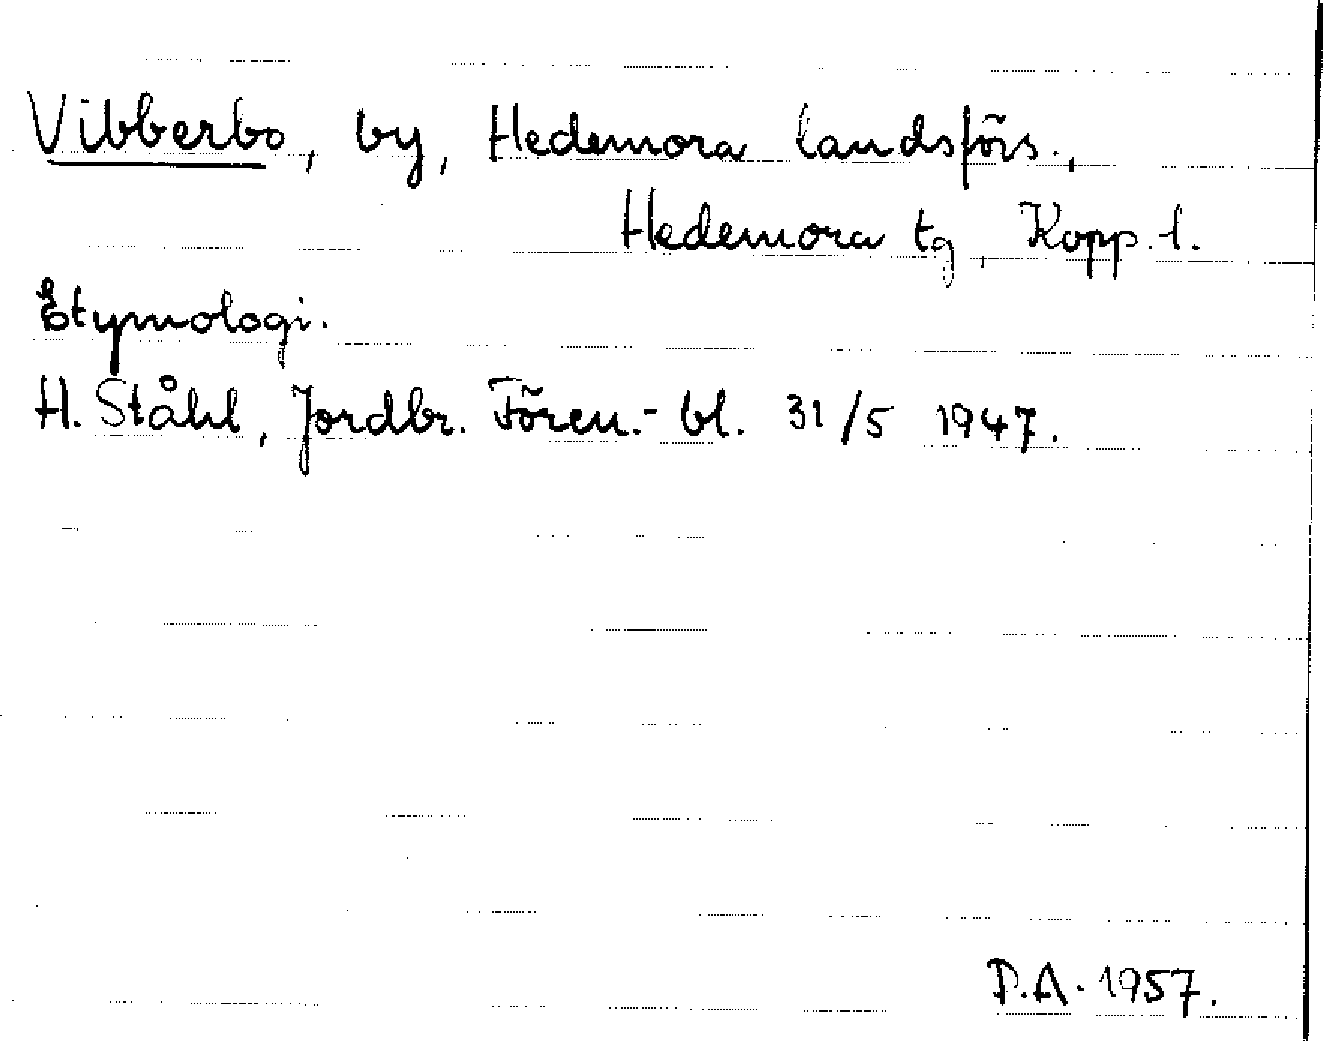 Vibberbo, by, Hedemora landsförs.,
Hedemora tg, Kopp. l.
Etymologi.
H. Ståhl, Jordbr. Fören.- bl. 31/5 1947.
P.A. 1957.